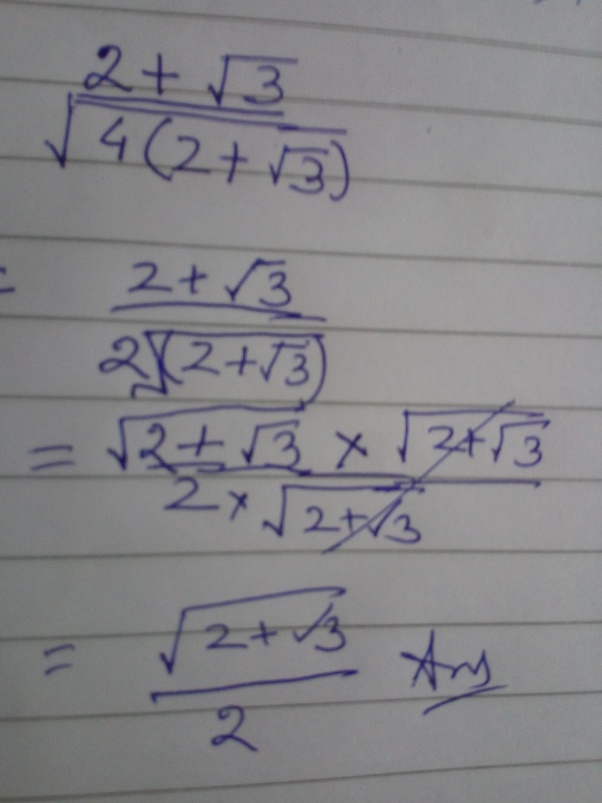 2 + √3
√4(2 + √3)
= 2 + √3
2√(2 + √3)
= √2 + √3 × √2 + √3
2 × √2 + √3
= √2 + √3 Ans
2